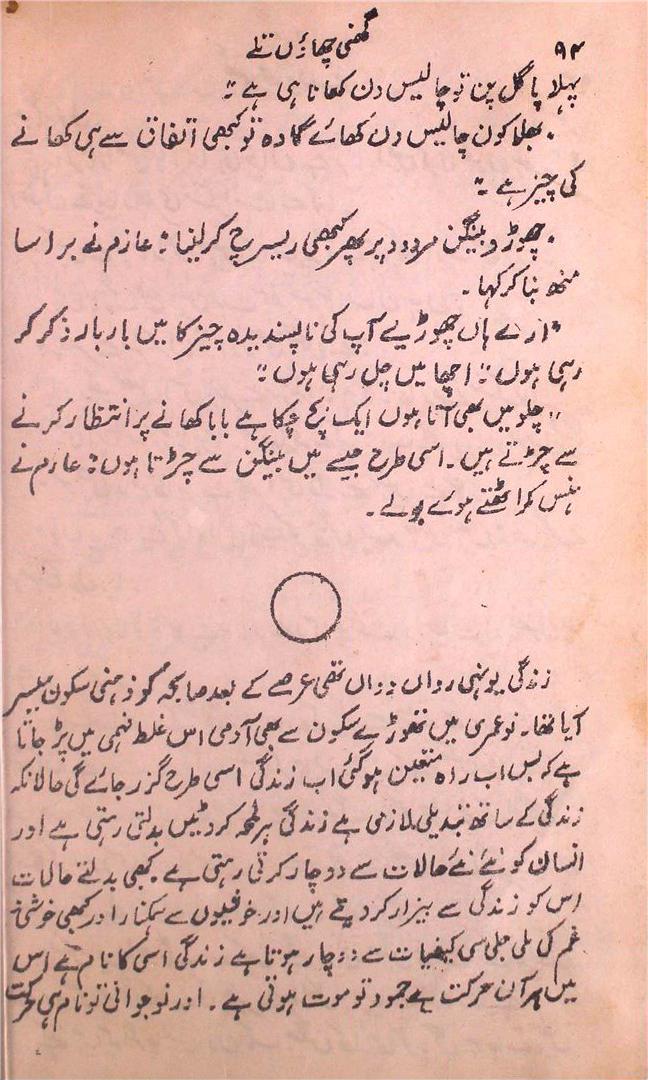 ۹۴ گھنی چھاؤں تلے
پہلا پاگل پن تو چالیس دن کھانا ہی ہے ؛؛
"بھلا کون چالیس دن کھائے گا وہ تو کبھی اتفاق سے ہی کھانے
کی چیز ہے ؛؛
"چھوڑو بینگن مردود پر پھر کبھی ریسرچ کرلینا؛ عازم نے برا سا
منھ بنا کر کہا ۔
"ارے ہاں چھوڑیے آپ کی ناپسندیدہ چیز کا میں بار بار ذکر کر
رہی ہوں ؛؛ اچھا میں چل رہی ہوں ؛؛
"چلو میں بھی آتا ہوں ایک بج چکا ہے بابا کھانے پر انتظار کرنے
سے چڑتے ہیں ۔ اسی طرح جیسے میں بینگن سے چڑتا ہوں؛ عازم نے
ہنس کر اٹھتے ہوئے بولے ۔
زندگی یونہی رواں دواں تھی عرصے کے بعد صابحہ کو ذہنی سکون میسر
آیا تھا۔ نو عمری میں تھوڑے سکون سے بھی آدمی اس غلط فہمی میں پڑ جاتا
ہے کہ بس اب راہ متعین ہوگئی اب زندگی اسی طرح گزر جائے گی حالانکہ
زندگی کے ساتھ تبدیلی لازمی ہے زندگی ہر لمحہ کروٹیں بدلتی رہتی ہے اور
انسان کو نئے نئے حالات سے دوچار کرتی رہتی ہے ۔ کبھی بدلتے حالات
اس کو زندگی سے بیزار کر دیتے ہیں اور خوشیوں سے ہمکنار اور کبھی خوشی
غم کی ملی جلی سی کیفیات سے دوچار ہوتا ہے زندگی اسی کا نام ہے اس
میں ہر آن حرکت ہے جمود تو موت ہوتی ہے ۔ اور نوجوانی تو نام ہی حرکت